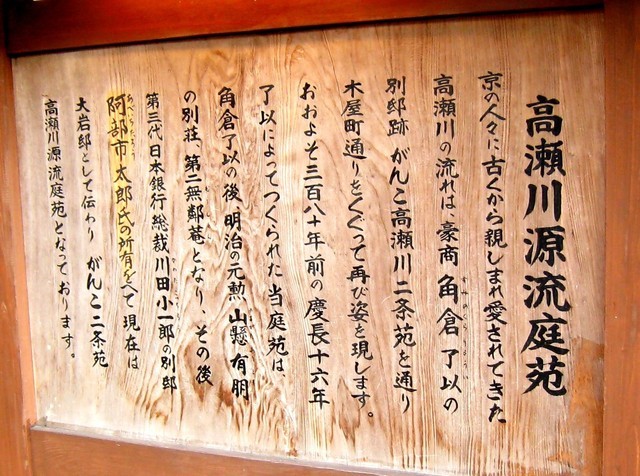 高瀬川源流庭苑
京の人々に古くから親しまれ愛されてきた
高瀬川の流れは、豪商 角倉了以の
別邸跡 がんこ高瀬川二条苑を通り
木屋町通りをくぐって再び姿を現します。
おおよそ三百八十年前の慶長十六年
了以によってつくられた当庭苑は、
角倉了以の後、明治の元勲 山縣有朋
の別荘、第二無鄰菴となり、その後
第三代日本銀行総裁川田小一郎の別邸
阿部市太郎氏の所有をへて現在は
大岩邸として伝わり がんこ二条苑
高瀬川源流庭苑となっております。